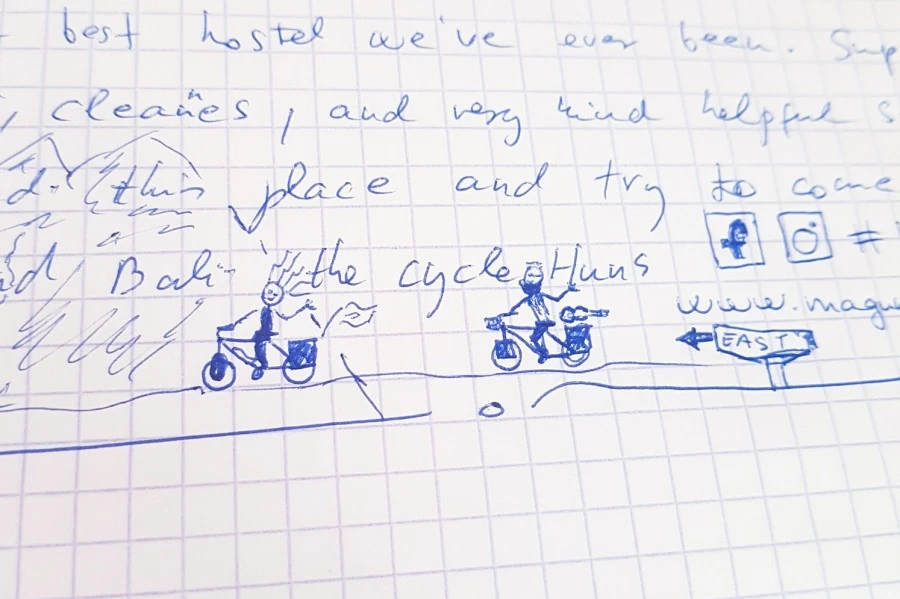 best hostel we've ever been. Sup
, cleanes, and very kind helpful s
this place and try to come
f #
Bali- the cycle Huns
www.magu
EAST